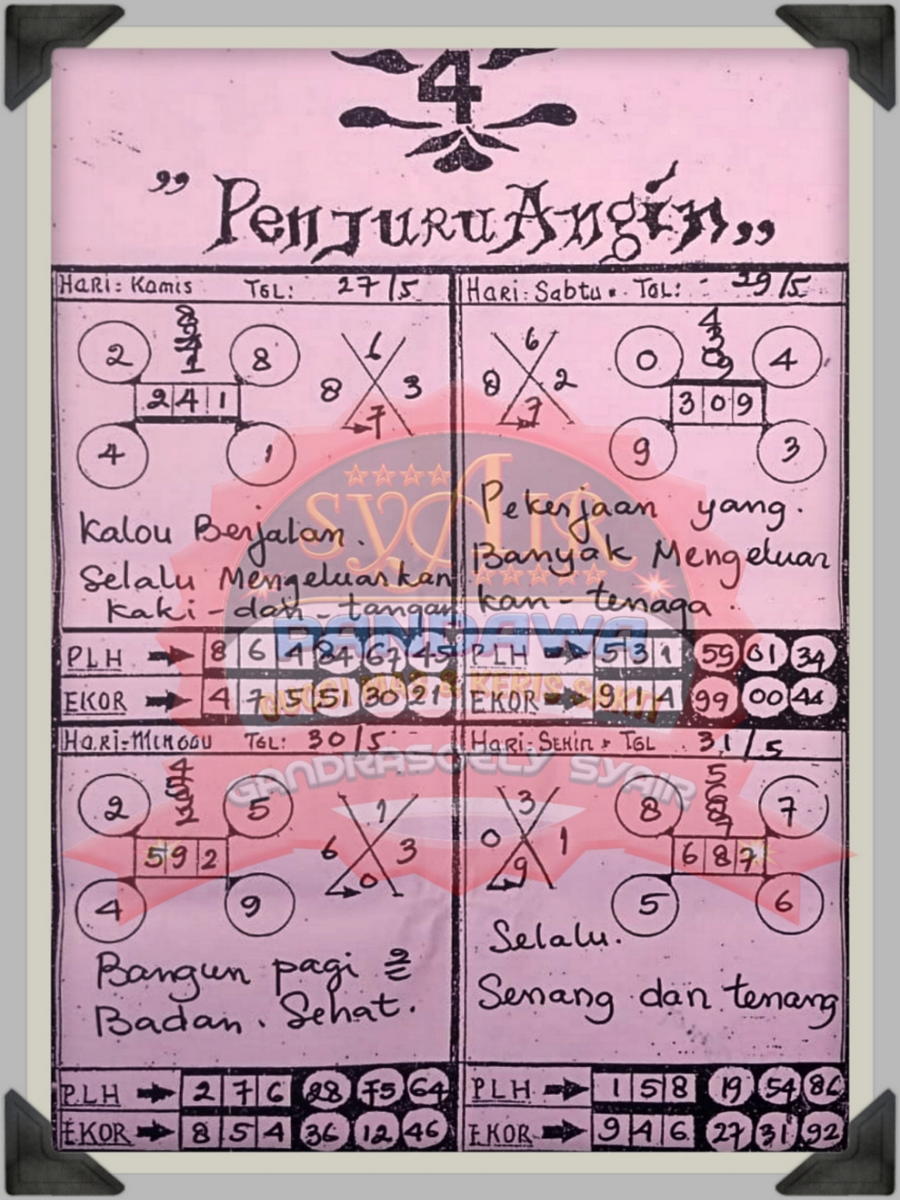 4
" Penjuru Angin „
HARi: Kamis TGL: 27/5
8
9
4
1
2 8
2 4 1
4 1
6
8 3
7
Kalou Berjalan.
Selalu Mengeluarkan
kaki-dan-tangan
PLH 8 6 4 84 67 45
EKOR 4 7 5 51 30 21
HARi: Sabtu. TGL: 29/5
4
3
0 9
6
8 2
7
0 4
3 0 9
9 3
Pekerjaan yang.
Banyak Mengeluar
kan-tenaga.
PLH 5 3 1 59 01 34
EKOR 9 1 4 99 00 44
HARi=MINGGU TGL: 30/5
2 5
5 9 2
4 9
1
6 3
0
Bangun pagi 2
Badan. Sehat.
PLH 2 7 6 28 75 64
EKOR 8 5 4 36 12 46
HARi=SENiN TGL 31/5
5
6
8
7
3
0 1
9
8 7
6 8 7
5 6
Selalu.
Senang dan tenang
PLH 1 5 8 19 54 86
EKOR 9 4 6 27 31 92
SYAIR
PANDAWA
GANDRASOELY SYAIR